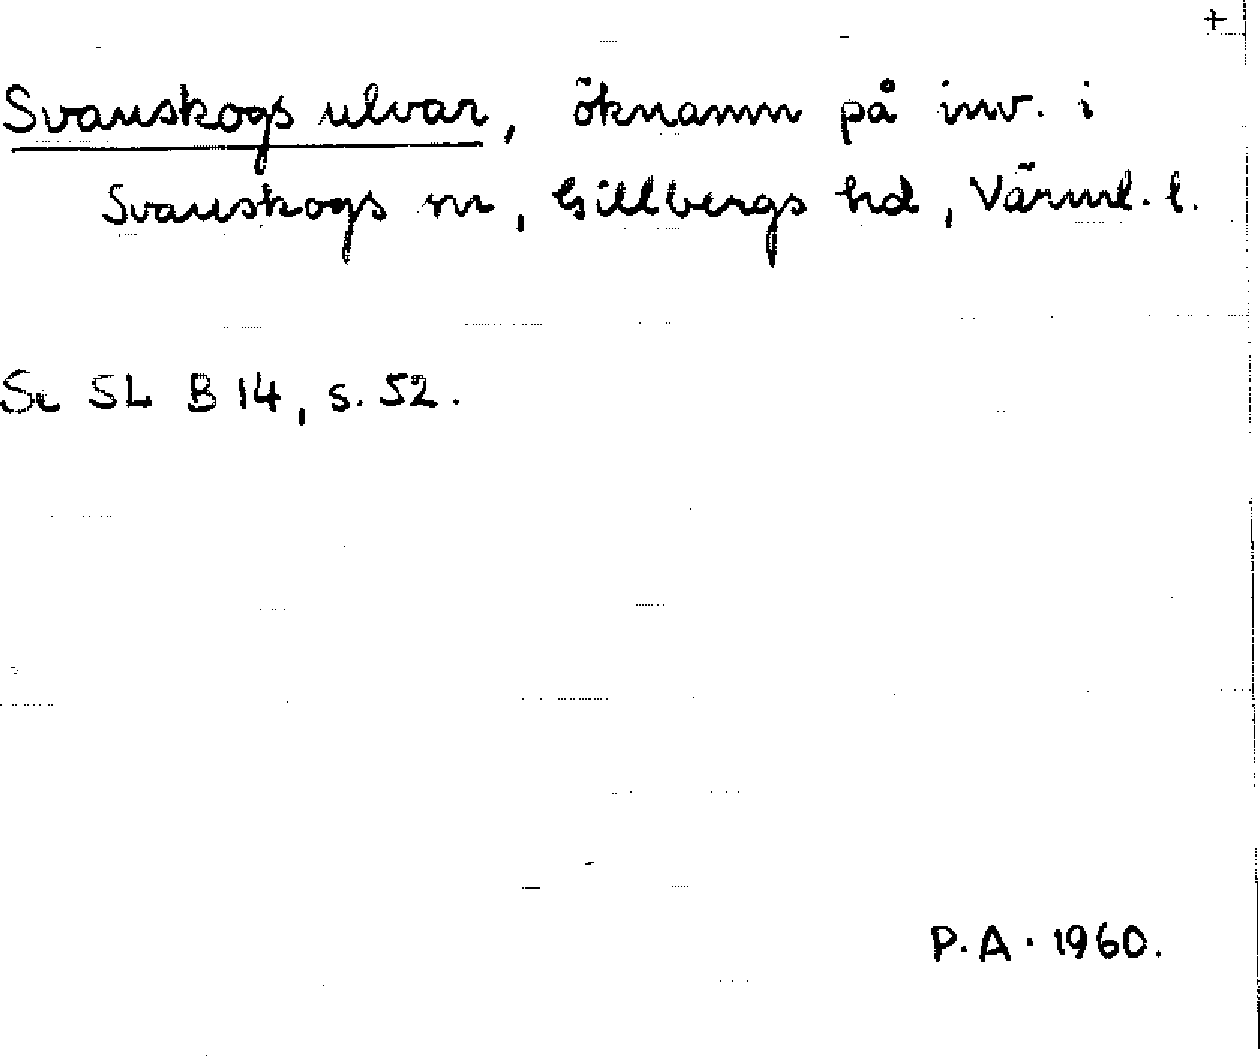 +
Svanskogs ulvar, öknamn på inv. i
Svanskogs sn, Gillbergs hd, Värml. l.
Se SL B 14, s. 52.
P.A. 1960.